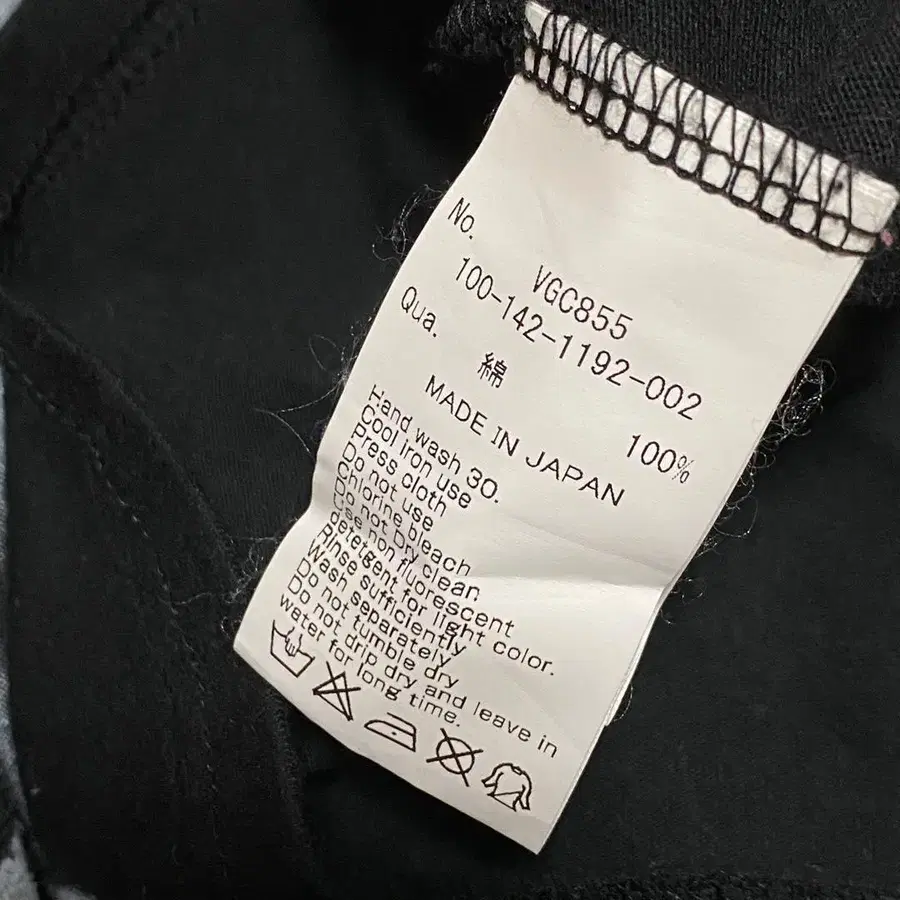 No.
VGC855
100-142-1192-002
Qua.
綿 100%
MADE IN JAPAN
Hand wash 30.
Cool Iron use
Press cloth
Do not use
Chlorine bleach
Do not Dry clean
Use non fluorescent
detergent for light color.
Rinse sufficiently
Wash separately
Do not tumble dry
Do not drip dry and leave in
water for long time.